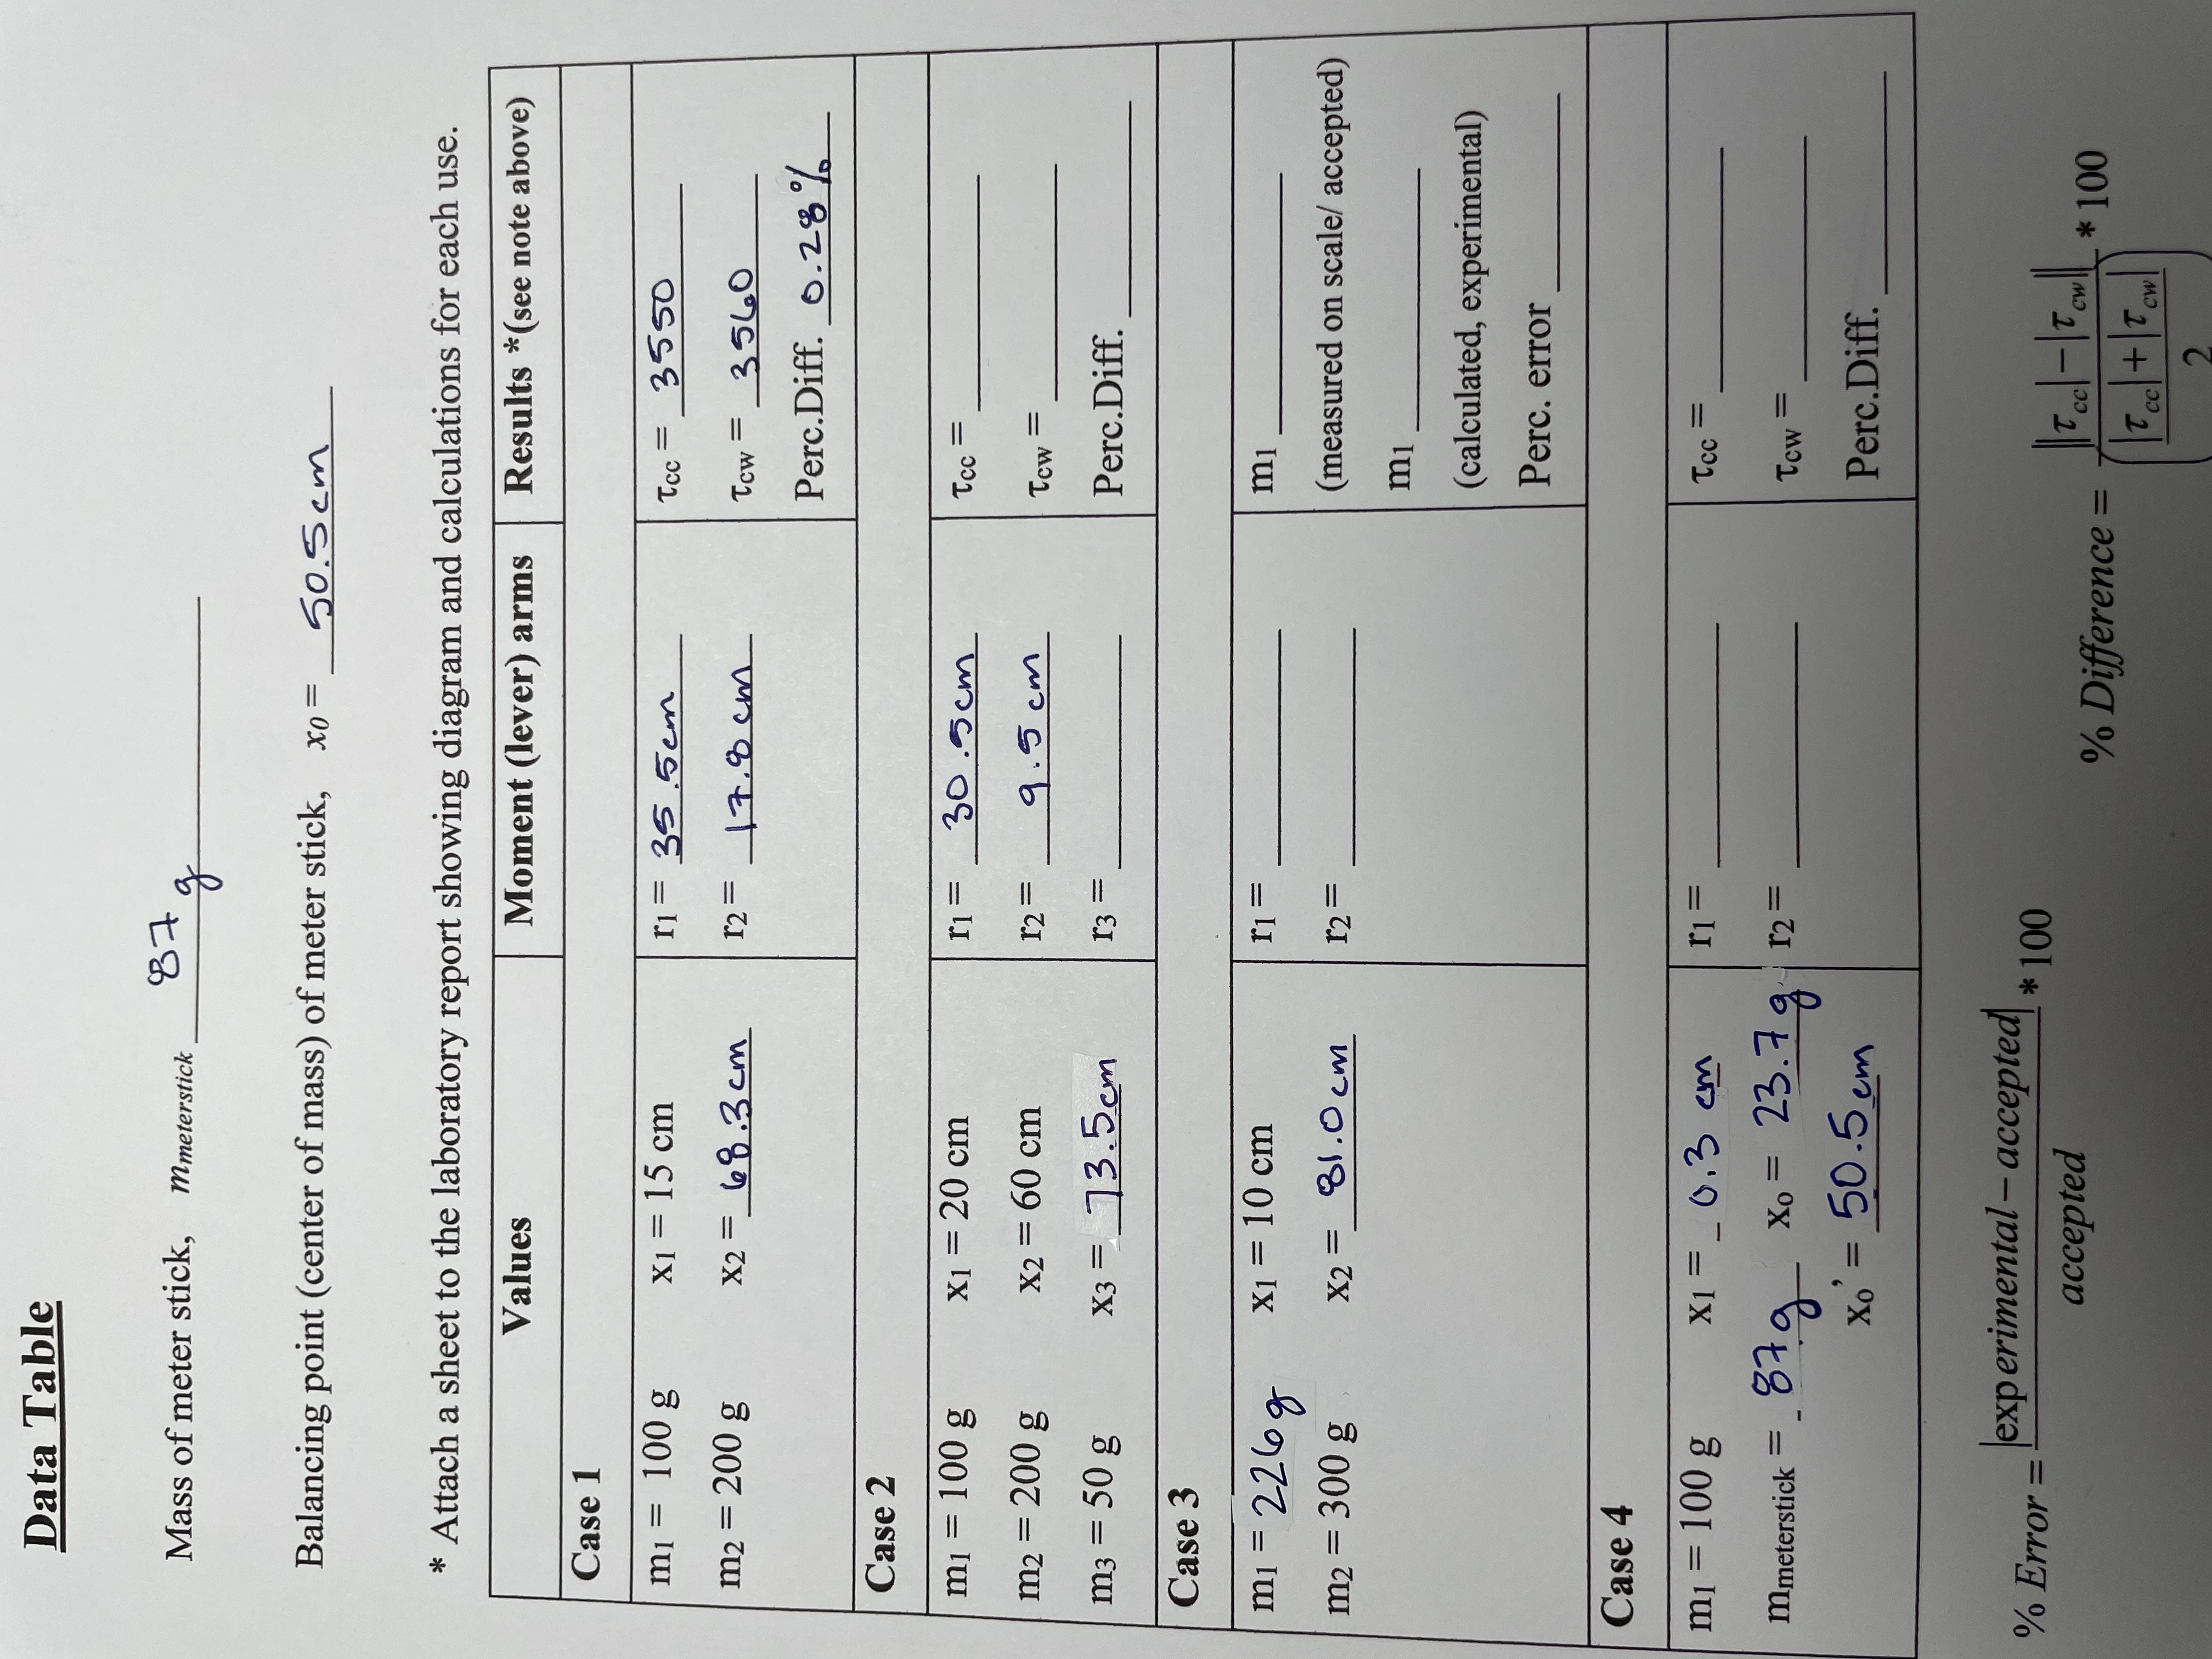 Data Table
Mass of meter stick, mmeterstick 87 g
Balancing point (center of mass) of meter stick, x0 = 50.5cm
* Attach a sheet to the laboratory report showing diagram and calculations for each use.
Values Moment (lever) arms Results *(see note above)
Case 1
m1 = 100 g x1 = 15 cm r1 = 35.5cm τcc = 3550
m2 = 200 g x2 = 68.3cm r2 = 17.8 cm τcw = 3560
Perc.Diff. 0.28%
Case 2
m1 = 100 g x1 = 20 cm r1 = 30.5cm τcc =
m2 = 200 g x2 = 60 cm r2 = 9.5 cm τcw =
m3 = 50 g x3 = 73.5cm r3 = Perc.Diff.
Case 3
m1 = 226g x1 = 10 cm r1 = m1
m2 = 300 g x2 = 81.0cm r2 = (measured on scale/ accepted)
m1
(calculated, experimental)
Perc. error
Case 4
m1 = 100 g x1 = 0.3 cm r1 = τcc =
mmeterstick = 87g x0 = 23.7g r2 = τcw =
x0' = 50.5cm Perc.Diff.
% Error = |experimental − accepted| / accepted * 100
% Difference = ||τcc| − |τcw|| / (|τcc| + |τcw| / 2) * 100